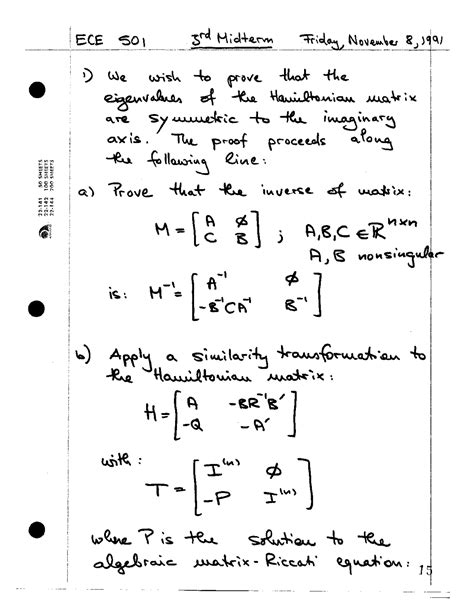 ECE 501 3rd Midterm Friday, November 8, 1991
1) We wish to prove that the
eigenvalues of the Hamiltonian matrix
are symmetric to the imaginary
axis. The proof proceeds along
the following line:
a) Prove that the inverse of matrix:
M = [A ∅; C B] ; A,B,C ∈ ℝ^{n×n}
A, B nonsingular
is: M⁻¹ = [A⁻¹ ∅; -B⁻¹CA⁻¹ B⁻¹]
b) Apply a similarity transformation to
the Hamiltonian matrix:
H = [A -BR⁻¹B'; -Q -A']
with:
T = [I⁽ⁿ⁾ ∅; -P I⁽ⁿ⁾]
where P is the solution to the
algebraic matrix-Riccati equation:
15
22-141 50 SHEETS
22-142 100 SHEETS
22-144 200 SHEETS